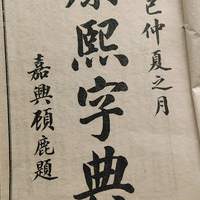 巳仲夏之月
康熙字典
嘉興顧鹿題